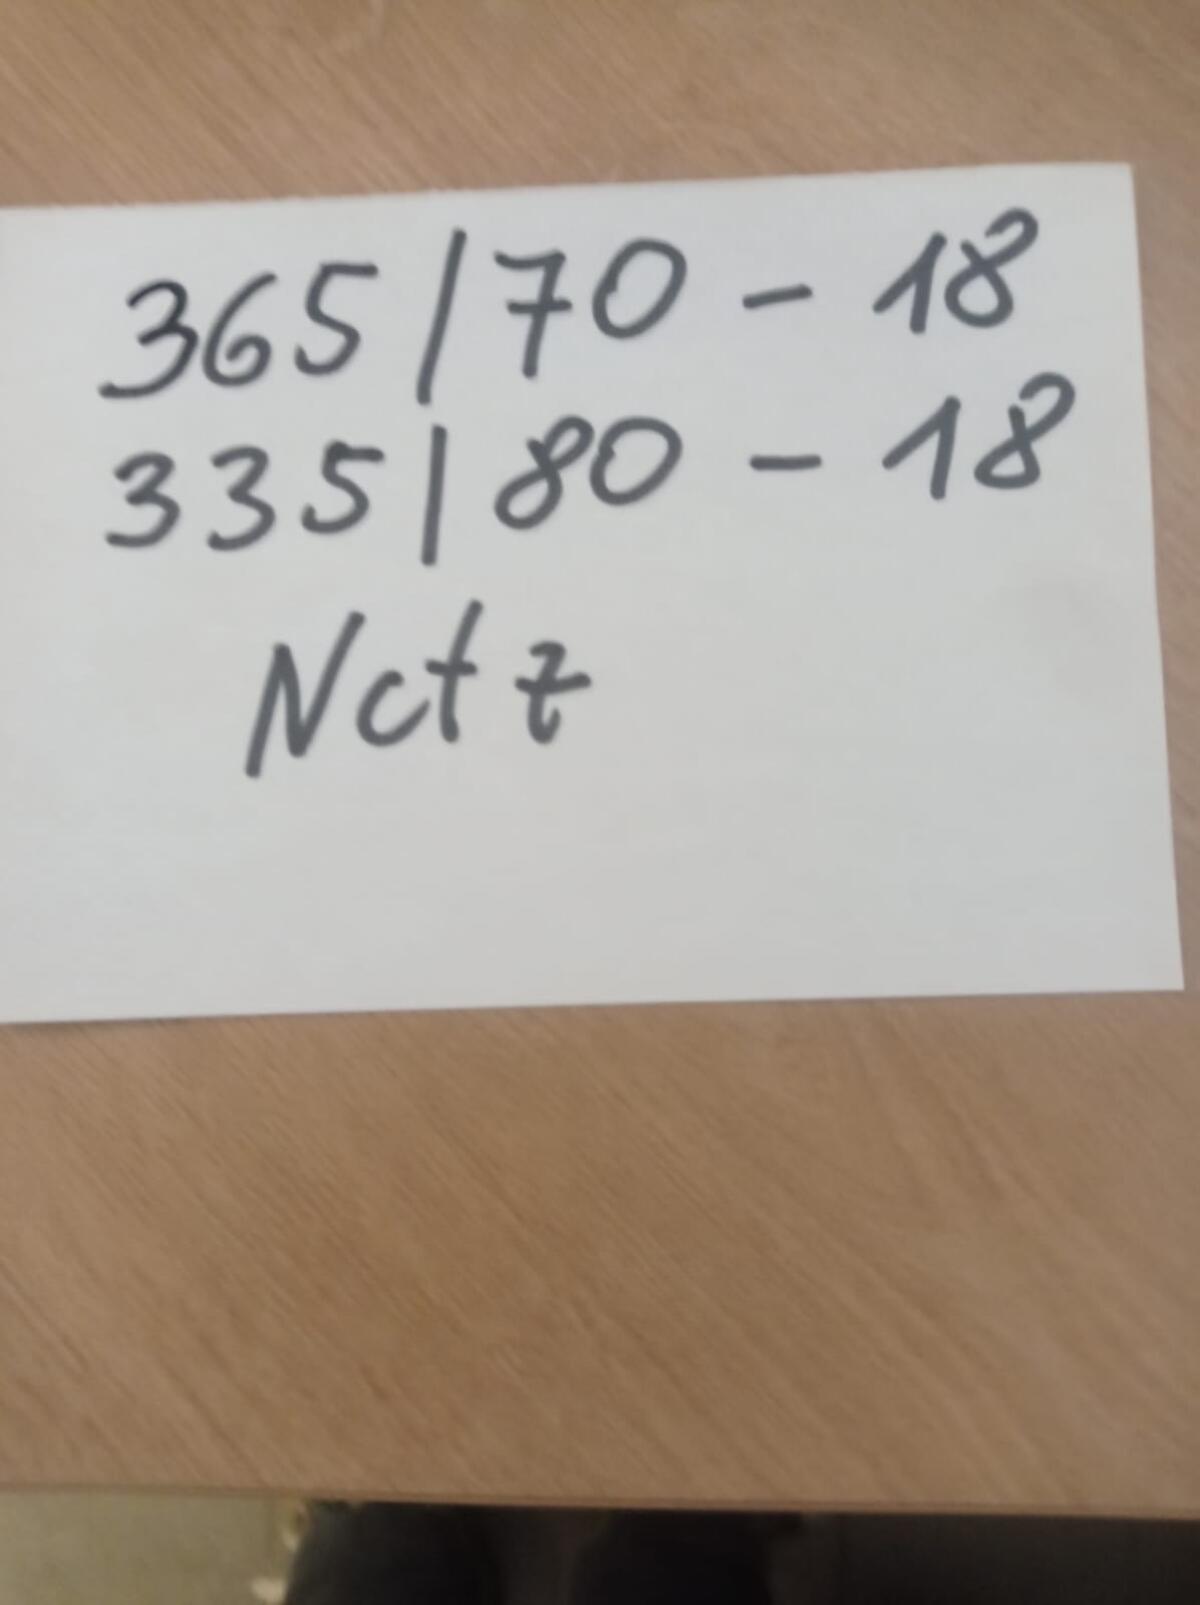 365/70 - 18
335/80 - 18
Nctz